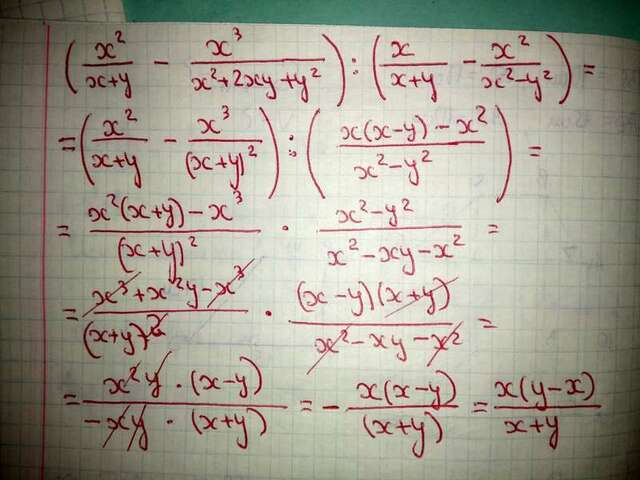 (x²/(x+y) − x³/(x²+2xy+y²)) : (x/(x+y) − x²/(x²−y²)) =
= (x²/(x+y) − x³/(x+y)²) : ((x(x−y)−x²)/(x²−y²)) =
= (x²(x+y)−x³)/(x+y)² · (x²−y²)/(x²−xy−x²) =
= (x³+x²y−x³)/(x+y)² · ((x−y)(x+y))/(x²−xy−x²) =
= (x²y·(x−y))/(−xy·(x+y)) = − x(x−y)/(x+y) = x(y−x)/(x+y)